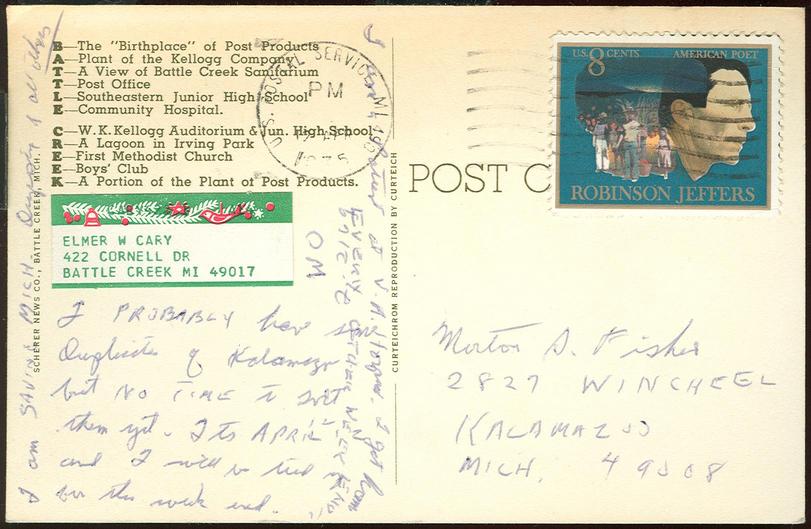 B—The "Birthplace" of Post Products
A—Plant of the Kellogg Company
T—A View of Battle Creek Sanitarium
T—Post Office
L—Southeastern Junior High School
E—Community Hospital.
C—W.K.Kellogg Auditorium & Jun. High School
R—A Lagoon in Irving Park
E—First Methodist Church
E—Boys' Club
K—A Portion of the Plant of Post Products.
ELMER W CARY
422 CORNELL DR
BATTLE CREEK MI 49017
I PROBABLY have some
Duplicates of Kalamazoo
but NO TIME to sort
them yet. Its APRIL
and I will be tied
for this week end.
I am SAVING MICH. of all cities
I work at V.A. I get home
EVERY OTHER WEEK END
SCHERER NEWS CO., BATTLE CREEK, MICH.
CURTEICHROM REPRODUCTION BY CURTEICH
U.S. POSTAL SERVICE, MI
PM
1975
POST C
U.S. 8 CENTS AMERICAN POET
ROBINSON JEFFERS
Morton S. Fisher
2827 WINCHEEL
KALAMAZOO
MICH. 49008